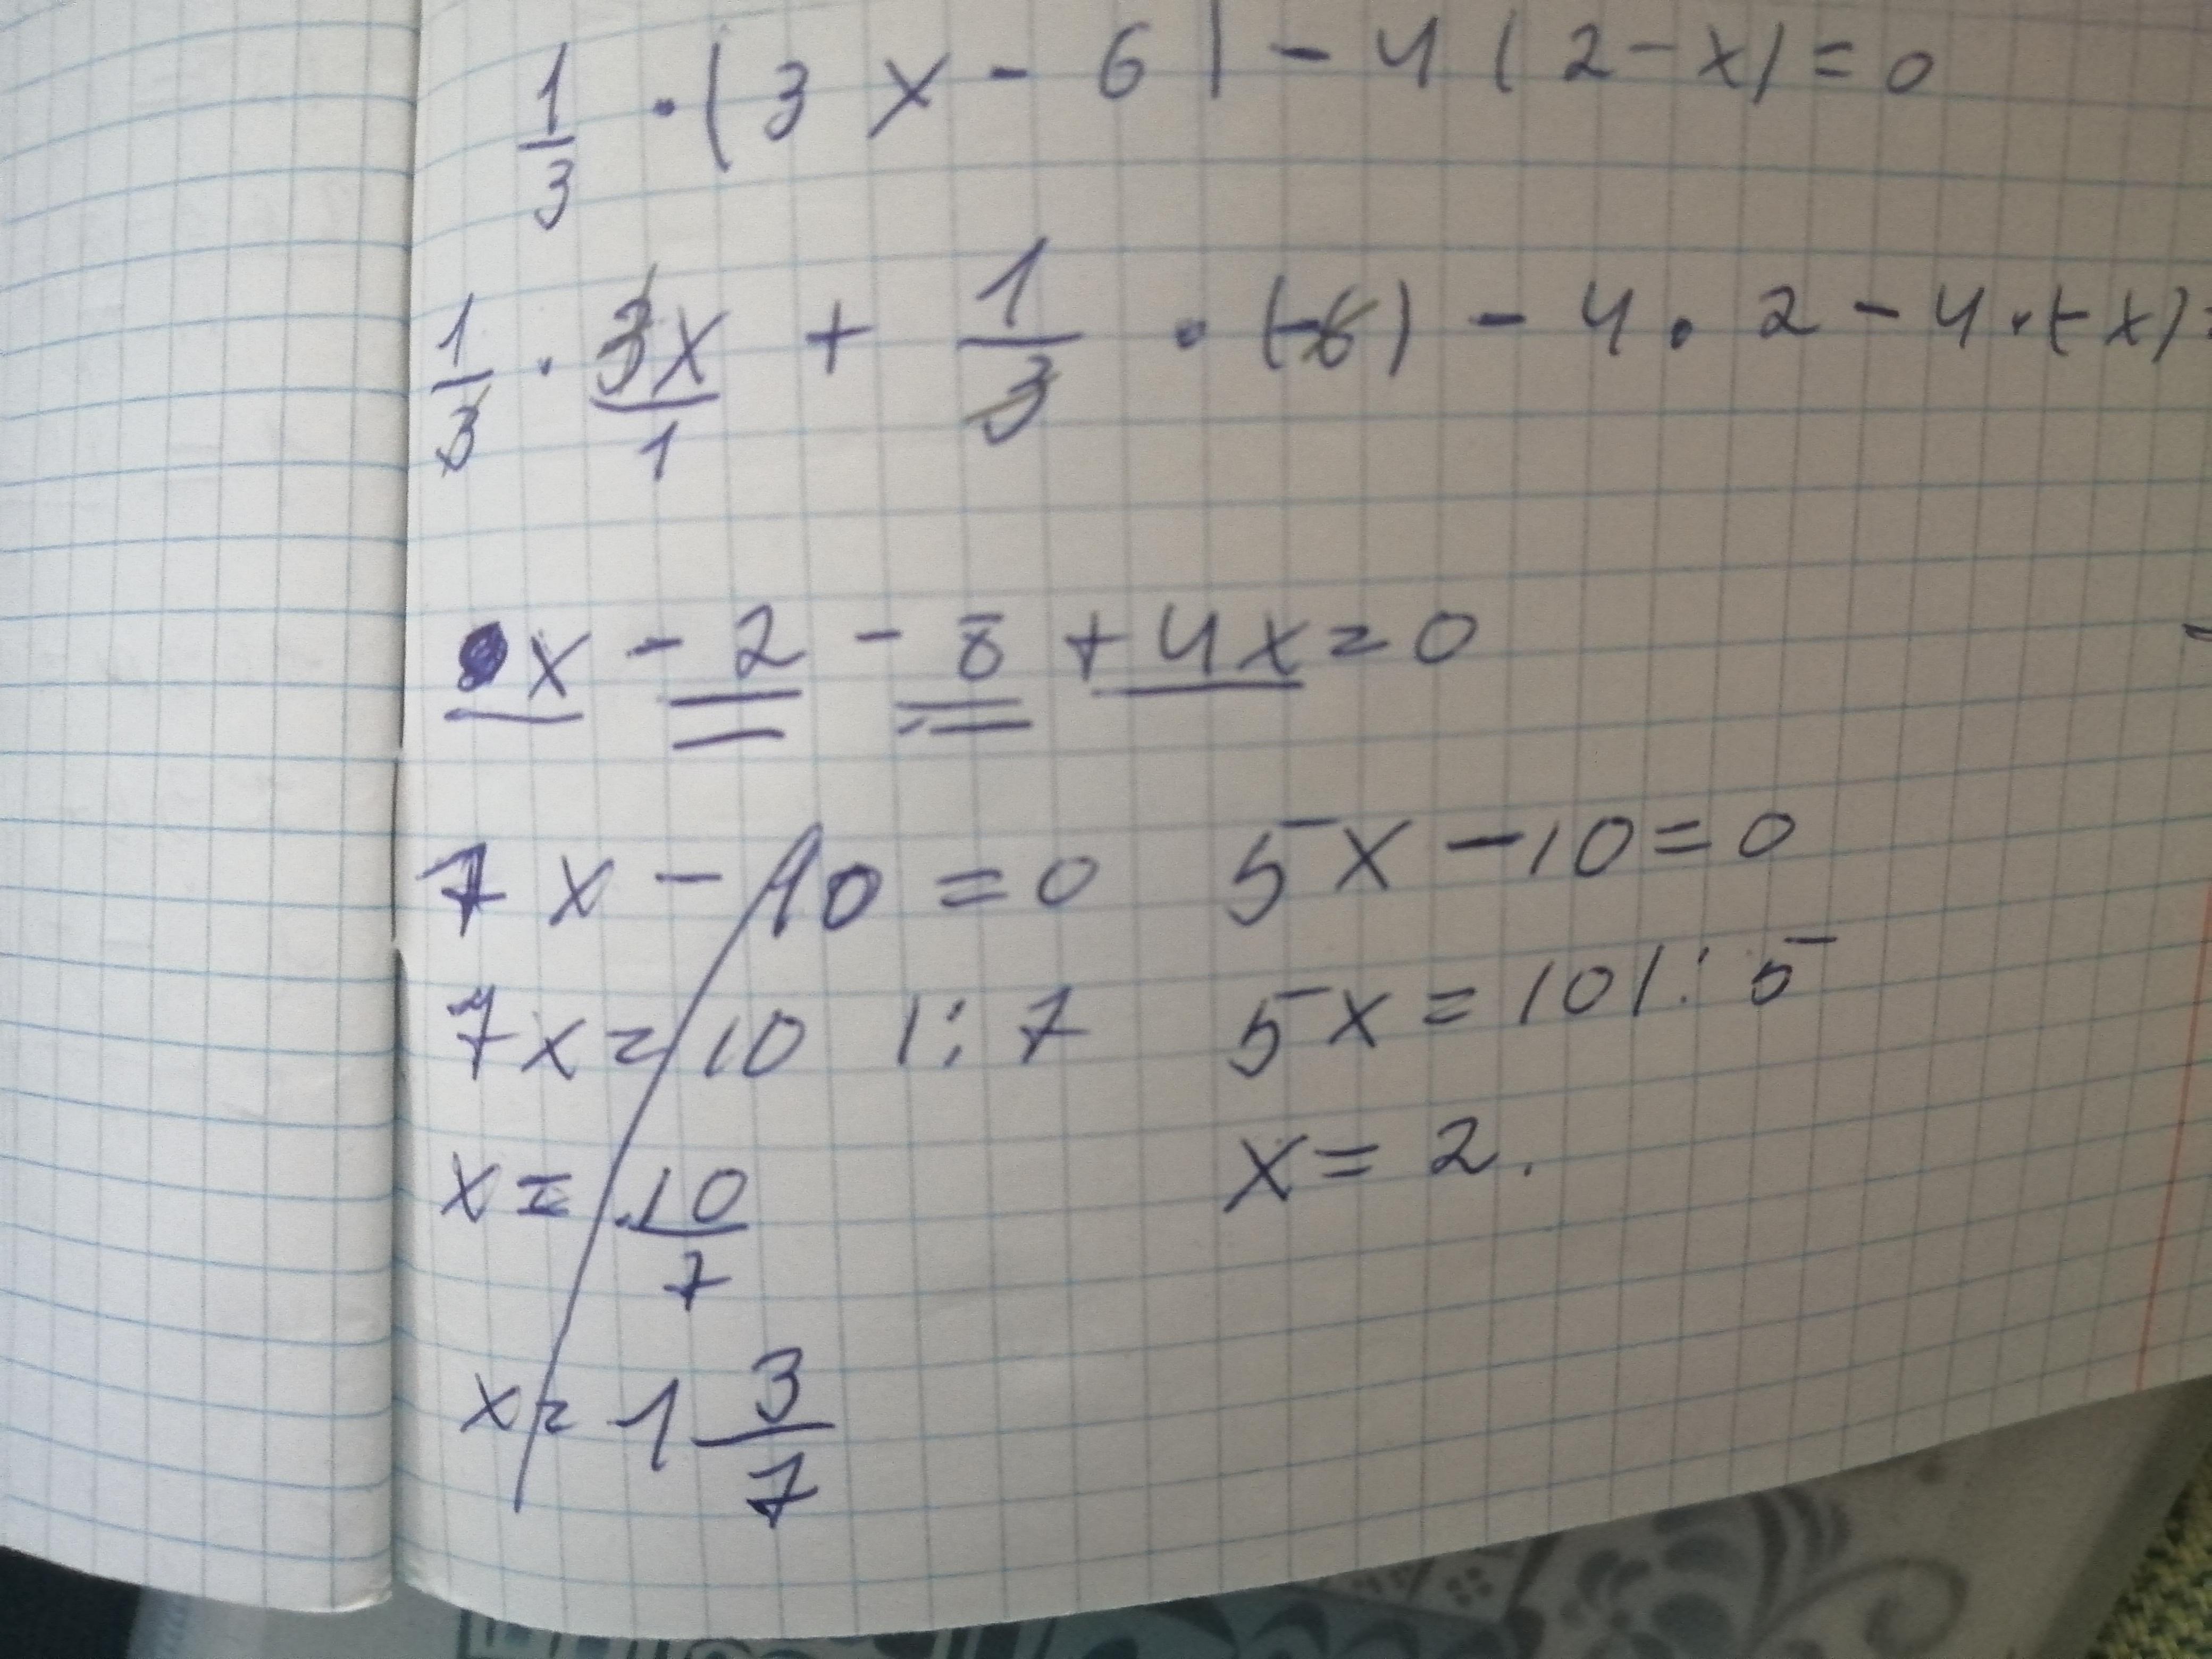 1/3 · (3x - 6) - 4(2-x) = 0
1/3 · 3x/1 + 1/3 · (-6) - 4 · 2 - 4 · (-x)
x - 2 - 8 + 4x = 0
7x - 10 = 0
7x = 10 |:7
x = 10/7
x = 1 3/7
5x - 10 = 0
5x = 10 |:5
x = 2.